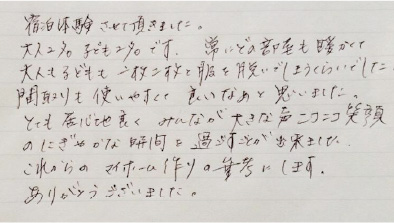 宿泊体験させて頂きました。
大人2名 子ども2名です。 常にどの部屋も暖かくて
大人も子どもも一枚二枚と服を脱いでしまうくらいでした
間取りも使いやすくて 良いなあと思いました。
とても居心地良く みんなが大きな声ニコニコ笑顔
のにぎやかな時間を過ごすことが出来ました。
これからの マイホーム作りの参考にします。
ありがとうございました。